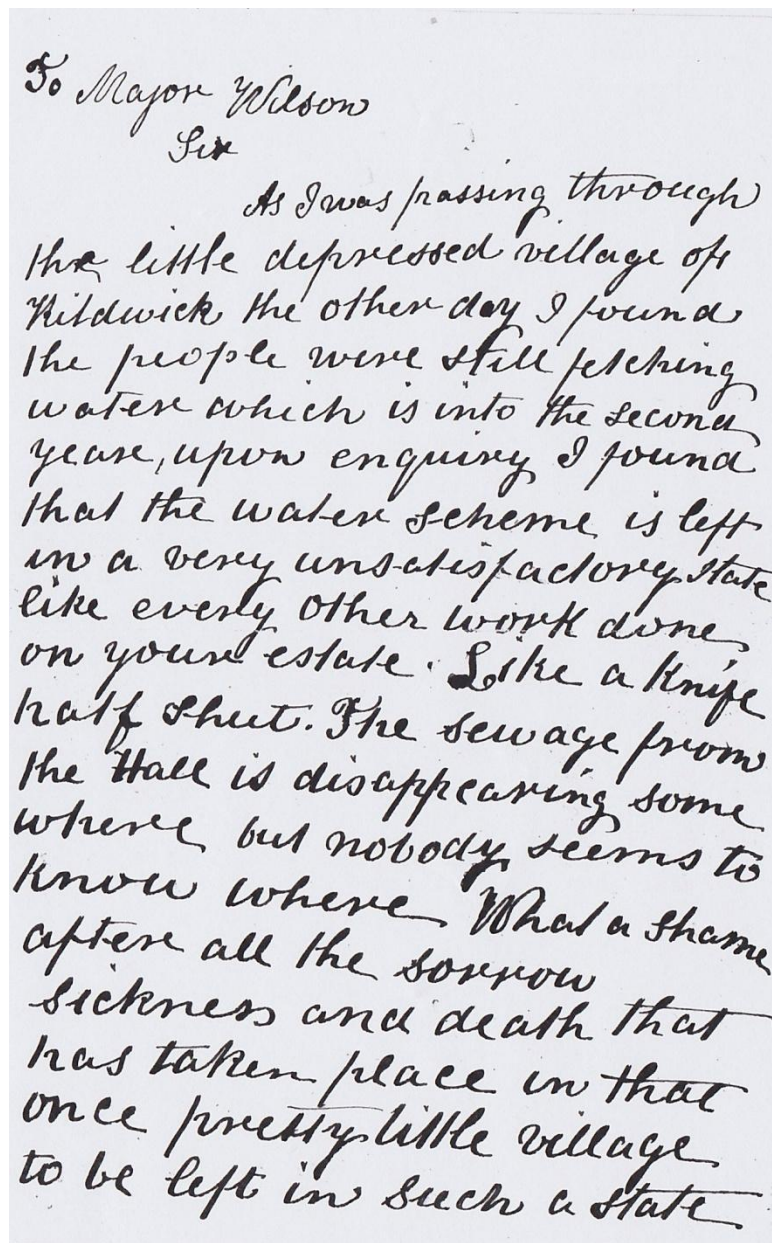 To Major Wilson
Sir
As I was passing through
the little depressed village of
Kildwick the other day I found
the people were still fetching
water which is into the second
year, upon enquiry I found
that the water scheme is left
in a very unsatisfactory state
like every other work done
on your estate. Like a Knife
half shut. The sewage from
the Hall is disappearing some
where but nobody seems to
know where What a shame
after all the sorrow
sickness and death that
has taken place in that
once pretty little village
to be left in such a state